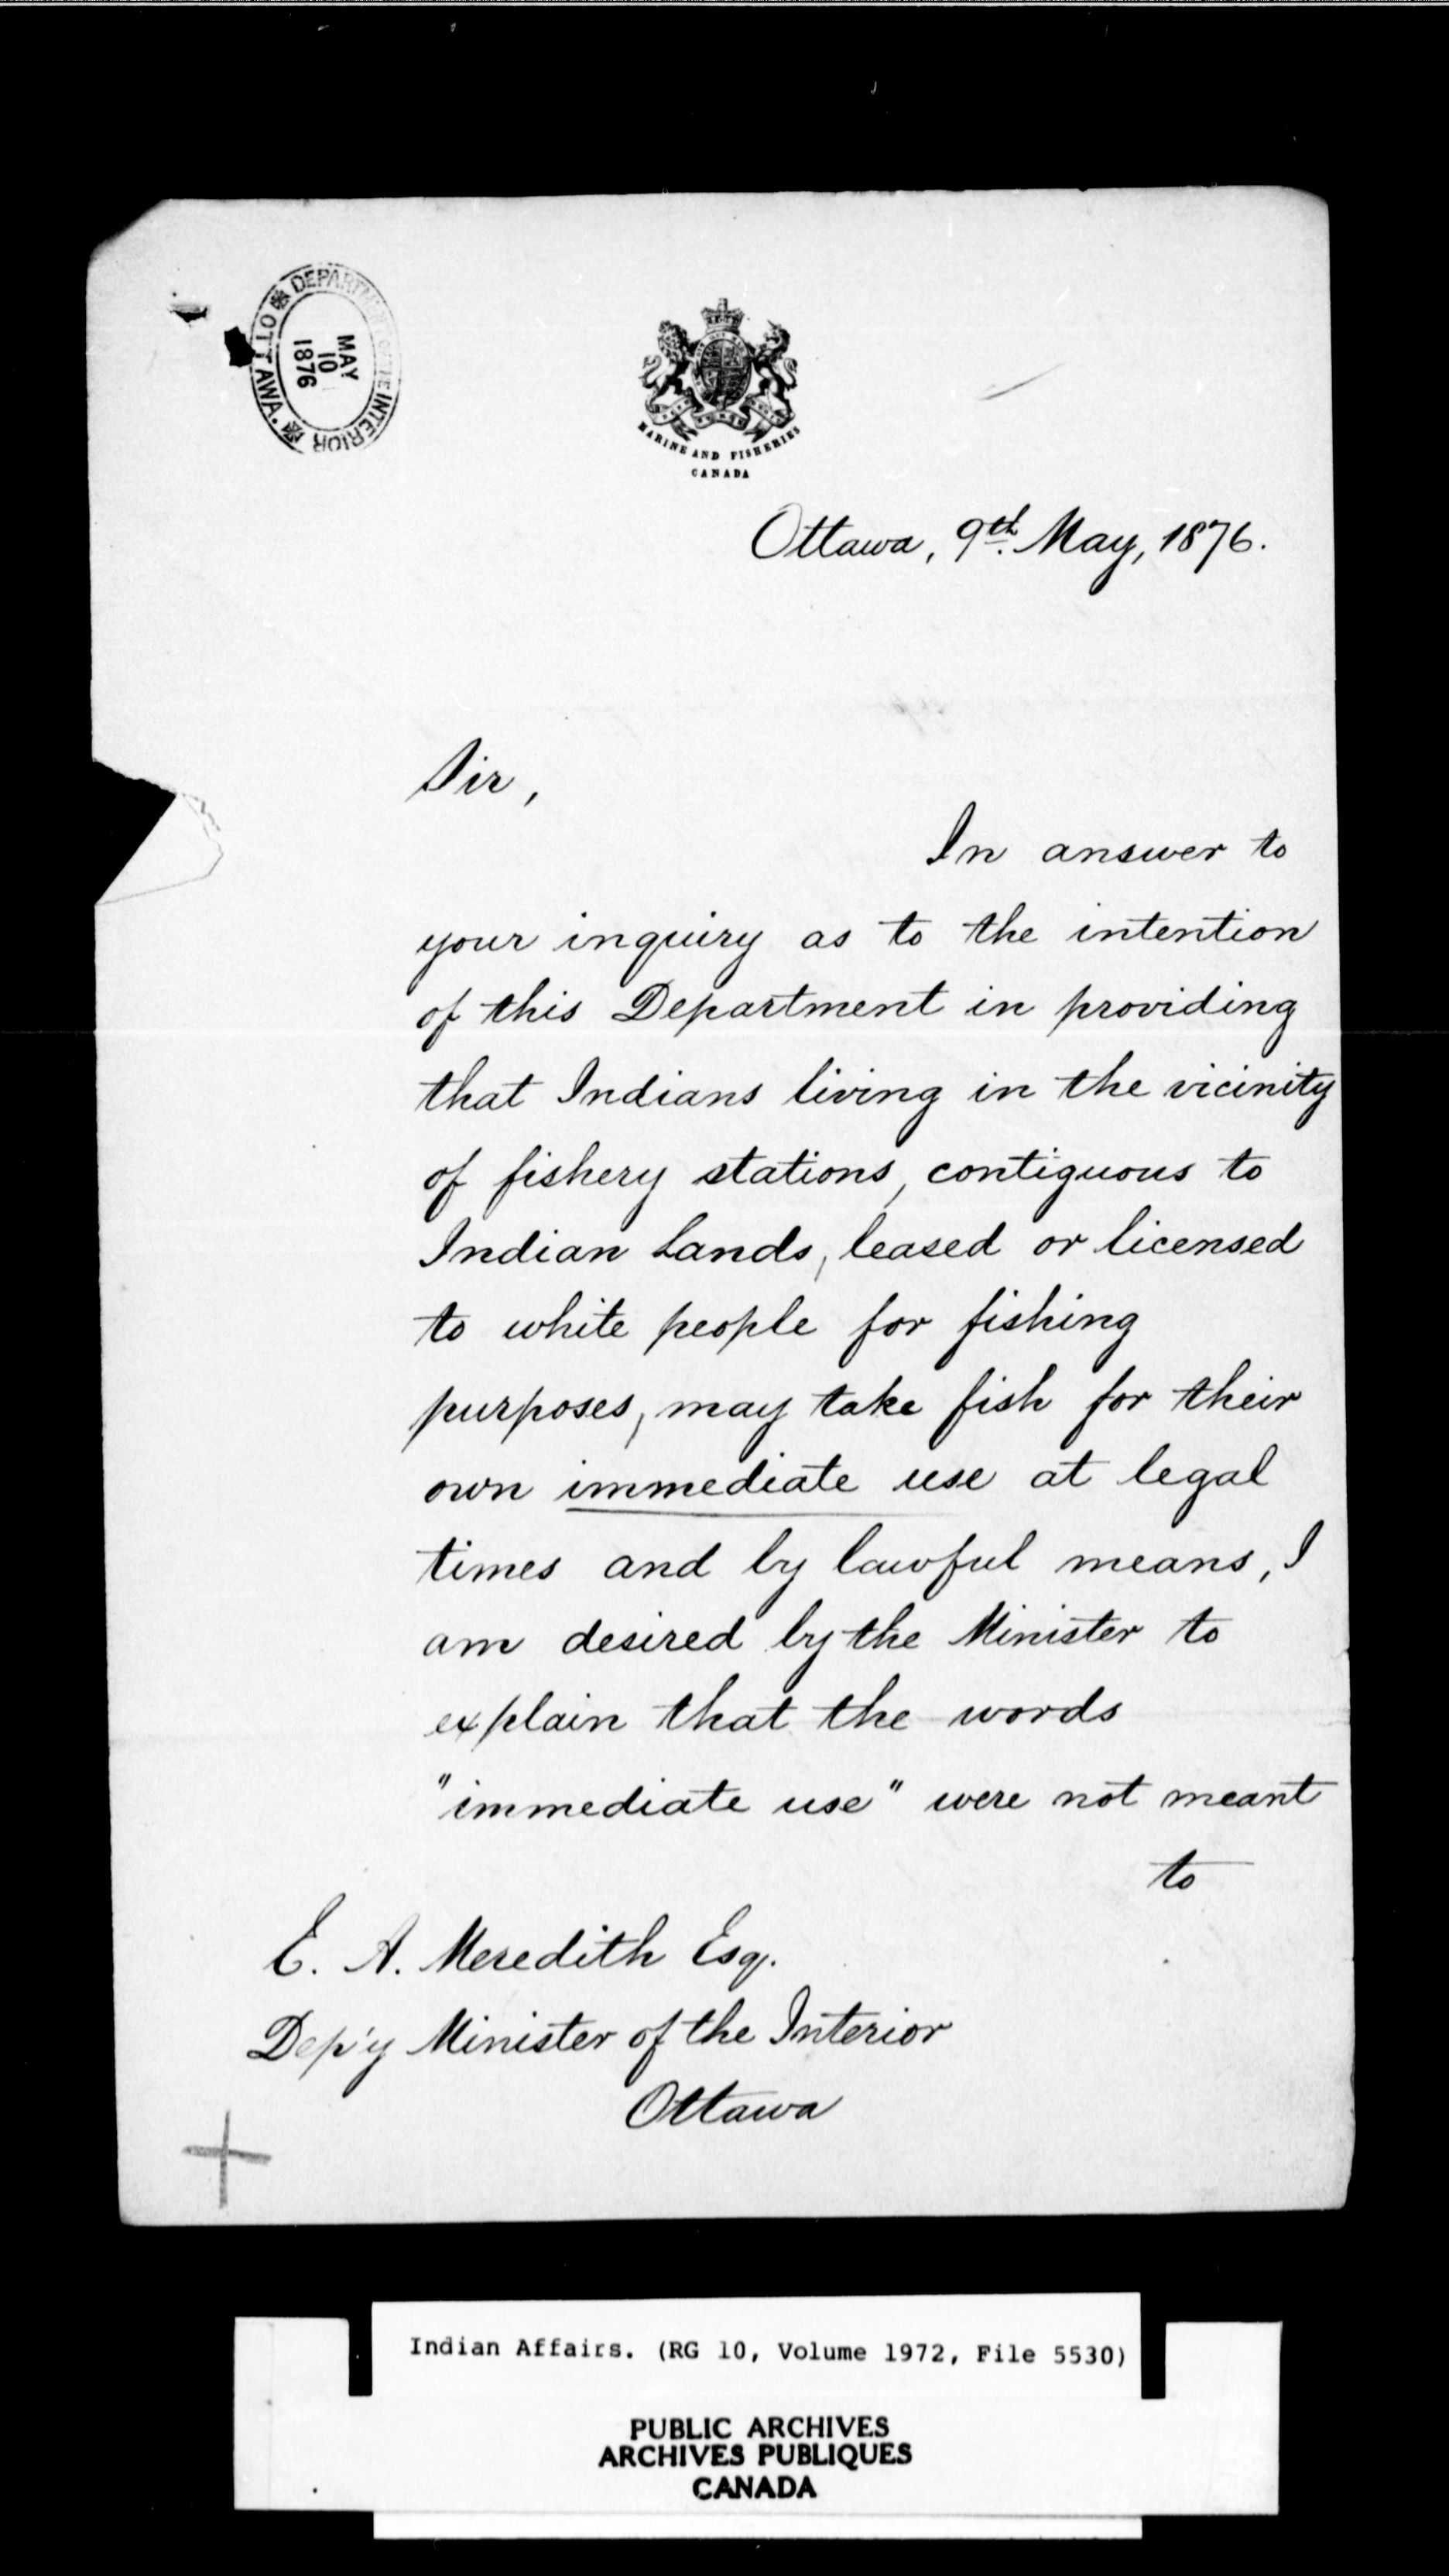 DEPARTMENT OF THE INTERIOR
OTTAWA.
MAY
10
1876
MARINE AND FISHERIES
CANADA
Ottawa, 9th. May, 1876.
Sir,
In answer to
your inquiry as to the intention
of this Department in providing
that Indians living in the vicinity
of fishery stations, contiguous to
Indian Lands, leased or licensed
to white people for fishing
purposes, may take fish for their
own immediate use at legal
times and by lawful means, I
am desired by the Minister to
explain that the words
"immediate use" were not meant
to
E. A. Meredith Esq.
Dep'y Minister of the Interior
Ottawa
Indian Affairs. (RG 10, Volume 1972, File 5530)
PUBLIC ARCHIVES
ARCHIVES PUBLIQUES
CANADA